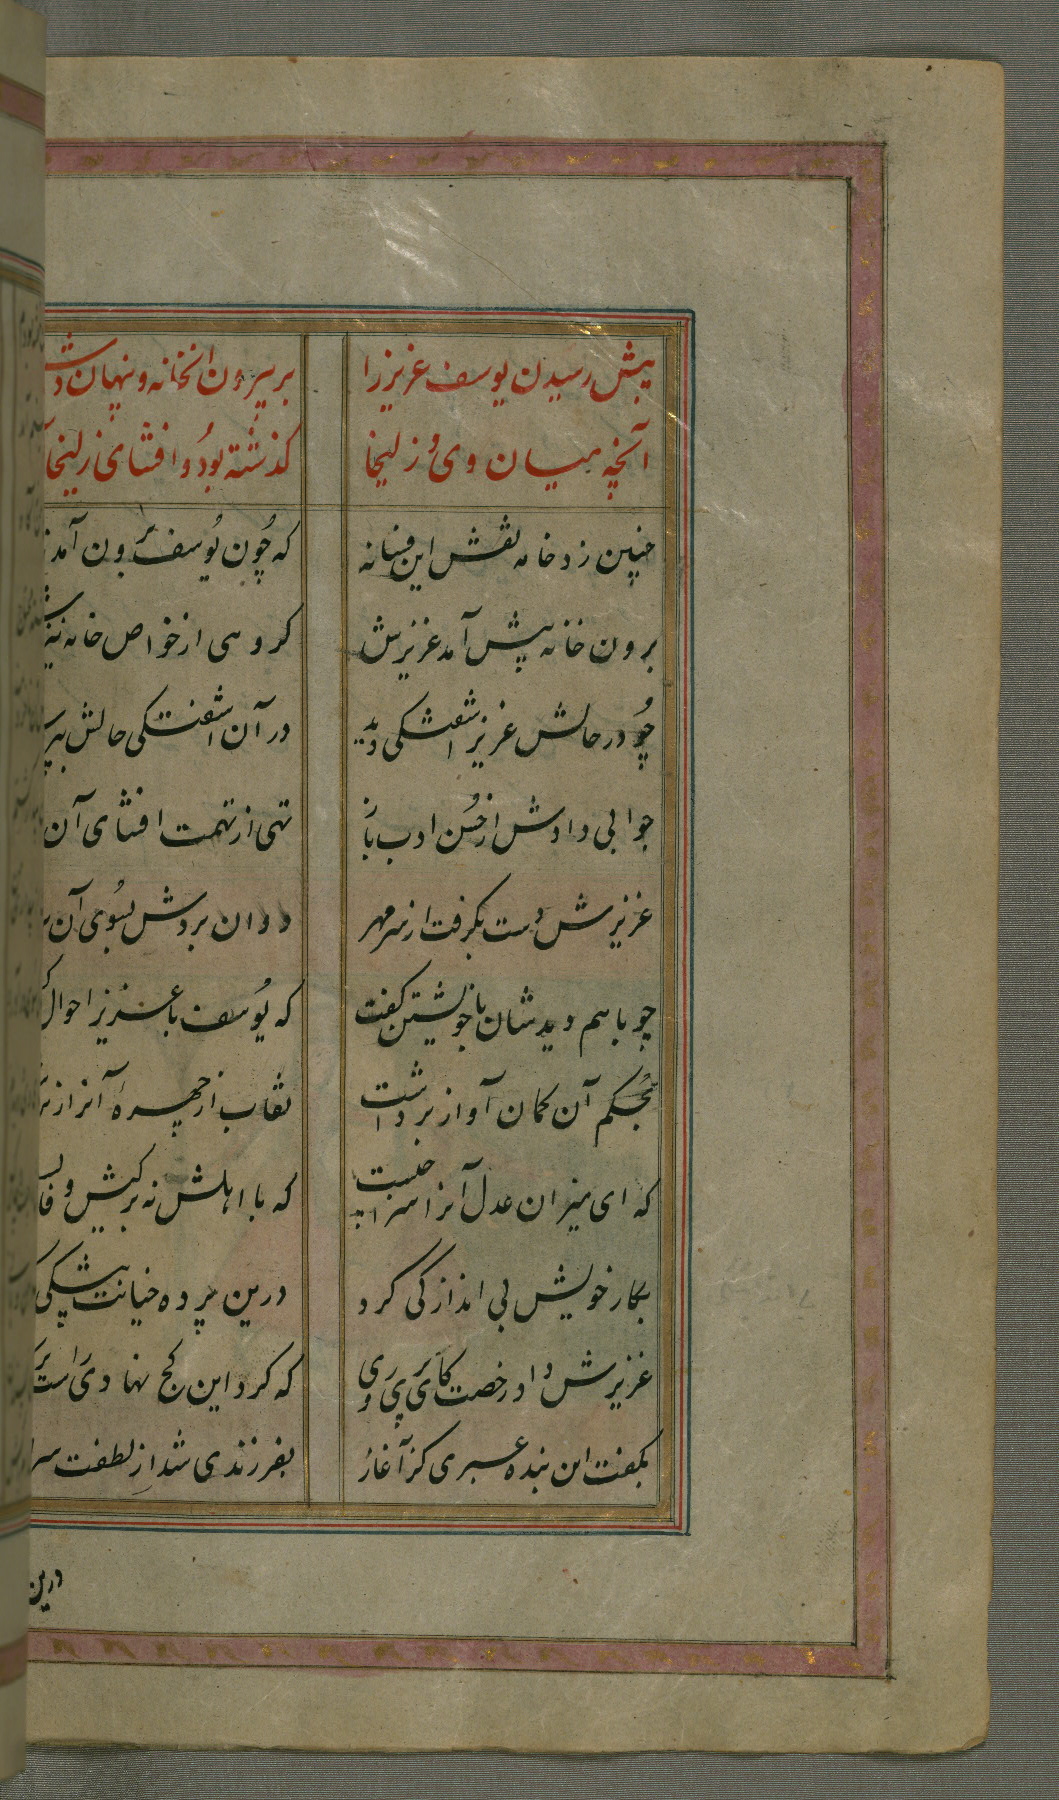 پیش رسیدن یوسف عزیز را بر بیرون انخانه و پنهان
آنچه میان وی و زلیخا گذشته بود و افشای زلیخا
چنین زد خامه نقش این فسانه که چون یوسف برون آمد
برون خانه پیش آمد عزیزش گروهی از خواص خانه نیز
چو در حالش عزیز آشفتگی دید در آن آشفتگی حالش
جوابی دادش از حسن ادب باز تهی از تهمت افشای آن
عزیزش دست بگرفت از سر مهر روان بردش بسوی آن
چو با هم دیدشان با خویشتن گفت که یوسف با عزیز احوال
بحکم آن گمان آواز برداشت نقاب از چهرهٔ آن راز
که ای میزان عدل آنرا سزا چیست که با اهلش نه بر کیش
بکار خویش بی اندازگی کرد درین پرده خیانت پیشگی
عزیزش داد رخصت کای پری روی که کرد این کج نهادی راست
بگفت این بنده عبری کز آغاز بفرزندی شد از لطفت
درین